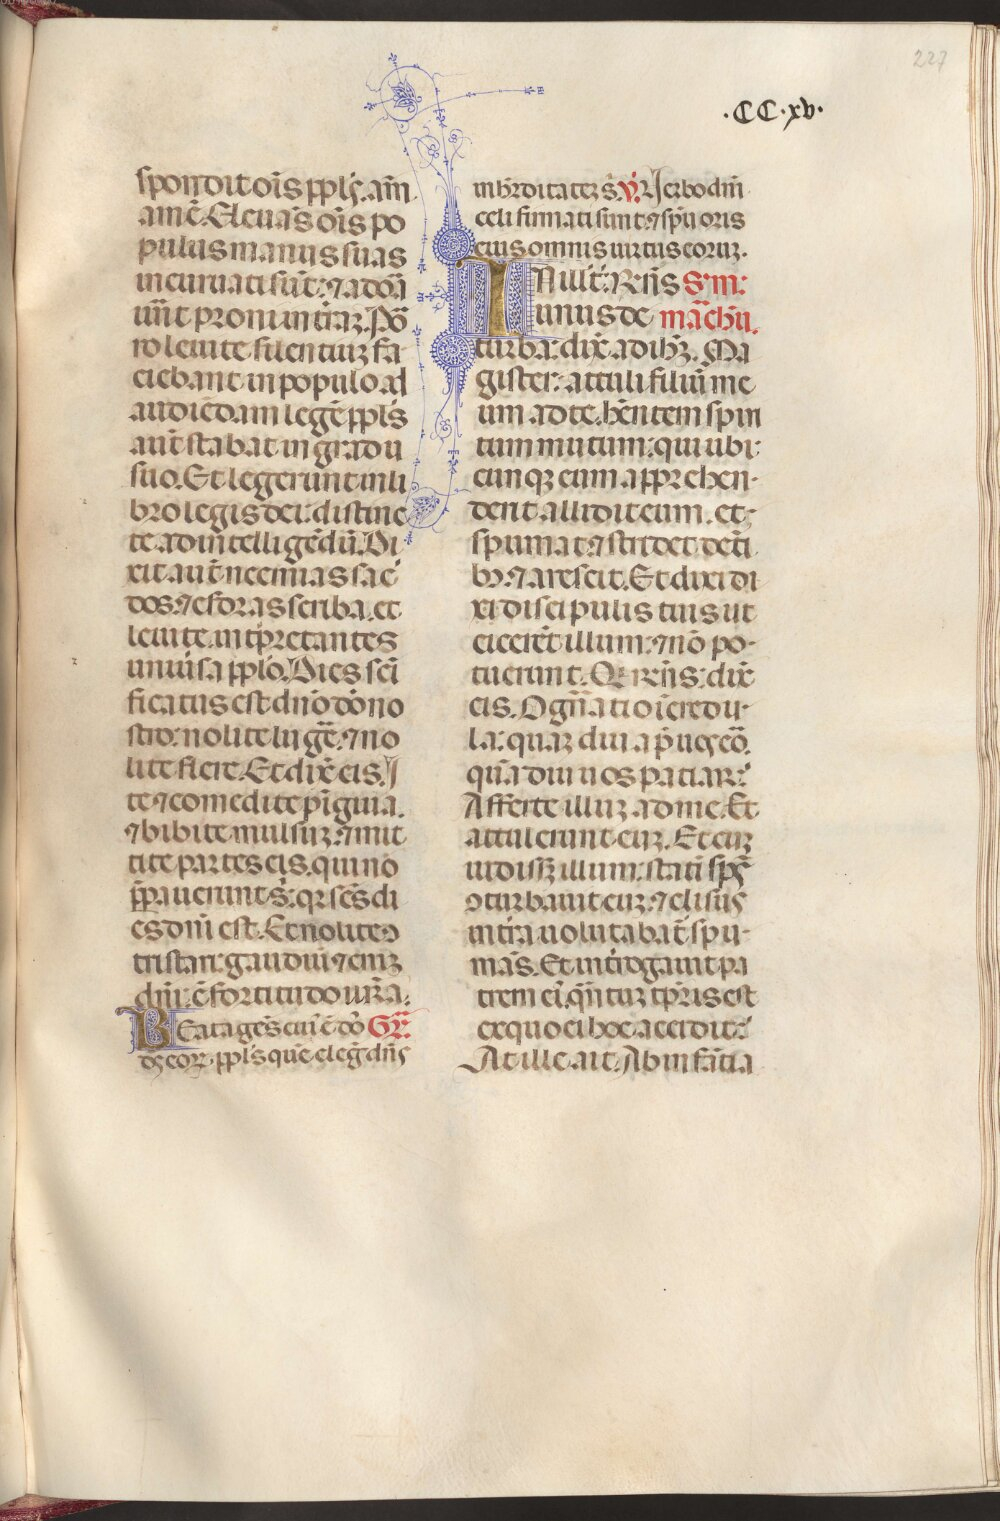 227
.CC.xv.
spondit ois ppls. am̄
amē. Eleuās ois po
pulus manus suas
incuruati sūt: ⁊ adorā
uūt proni in t̄raꝫ. Poͬ
ro leuite silentiuꝫ fa
ciebant in populo ad
audiēdam legē ppl's
aut̄ stabat in gradu
suo. Et legerunt in li
bro legis dei: distinc
te ad intelligēdū. Di
xit aut̄ neemias sac̄
dos. ⁊ esdras scriba. et
leuite. int̄pretantes
uniūsa pplo. Dies sc̄i
ficatus est dn̄o dō no
stro: nolite lugē. ⁊ no
lite flere. Et dix̄ eis. I
te ⁊ comedite pīguia.
⁊ bibite mulsuꝫ. ⁊ mit
tite partes eis. qui nō
p̄pauerunt s̄. qꝛ sc̄s di
es dn̄i est. Et nolite 9
tristari: gaudiū ⁊ eniꝫ
dn̄i. ē fortitudo ur̄a.
Beata gēs cui' ē dō Gr̄.
dꝰ eoꝝ. ppl's quē eleḡ dn̄s
in hr̄ditateꝫ s. V̄. Uerbo dn̄i
celi firmati sunt. ⁊ sp̄u oris
eius omnis uirtus eoruꝫ.
In illt̄. Rn̄s S. m̄.
unus de marchū.
turba: dix̄ ad ihꝫ. Ma
gister: attuli filiū me
um ad te. hn̄tem spiri
tum mutum: qui ubi
cunqꝫ eum apprehen-
derit allidit eum. et
spumat ⁊ stridet denti
bꝰ. ⁊ arescit. Et dixi di
xi discipulis tuis ut
eicerēt illum: ⁊ nō po-
tuerunt. Q̄ rn̄s: dix̄
eis. O gn̄atio īcredu-
la: quādiu apud uos ero.
quādiu uos patiar?
Afferte illuꝫ ad me. Et
attulerunt euꝫ. Et cuꝫ
uidissꝫ illum: statī sps
9turbauit euꝫ. ⁊ elisus
in t̄ra uolutabat̄ spu-
mās. Et int̄rogauit pa
trem ei'. qn̄tuꝫ tp̄ris est
ex quo ei hoc accidit?
At ille ait. Ab infātia